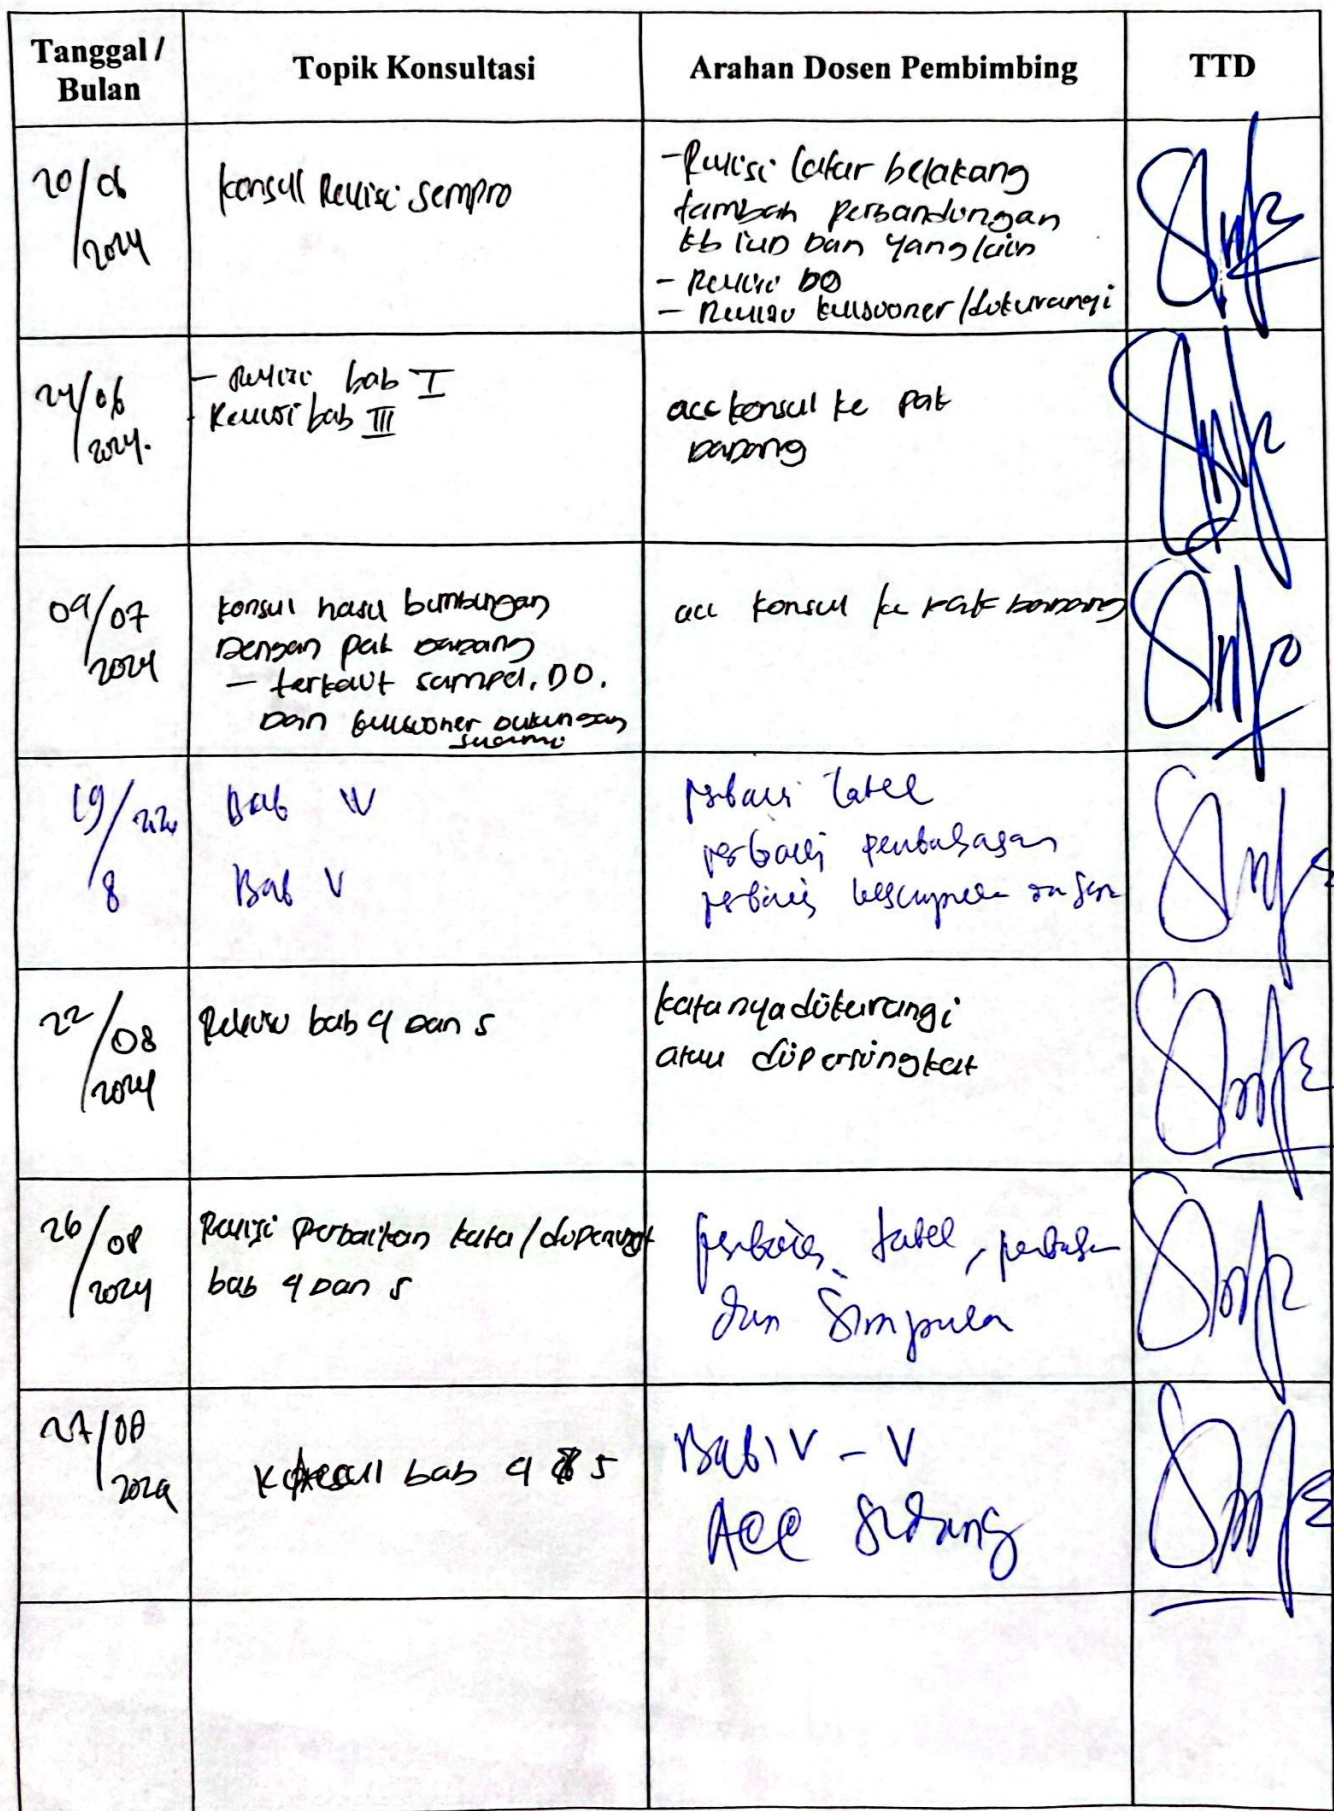 Tanggal /
Bulan
Topik Konsultasi
Arahan Dosen Pembimbing
TTD
20/06
2024
konsul Revisi sempro
- Revisi latar belakang
tambah perbandingan
kb iud dan yang lain
- Revisi DO
- Revisi kuisioner/dikurangi
24/06
2024.
- Revisi bab I
- Revisi bab III
acc konsul ke pak
Danang
09/07
2024
konsul hasil bimbingan
Dengan pak Danang
- terkait sampel, DO,
Dan kuisioner dukungan
suami
acc konsul ke Pak Danang
19/
8
Bab IV
Bab V
perbaiki tabel
perbaiki pembahasan
perbaiki kesimpulan
22/08
2024
Revisi bab 4 Dan 5
katanya dikurangi
atau dipersingkat
26/08
2024
Revisi perbaikan kata/dipersingkat
bab 4 Dan 5
perbaiki tabel, pembahasan
dan Simpulan
27/08
2024
Konsul bab 4 & 5
Bab IV - V
Acc Sidang